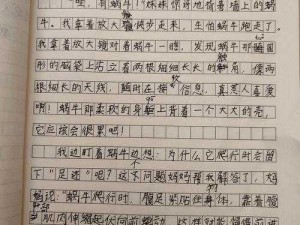 哇，有蜗牛！"妹妹惊讶地指着墙上的蜗
牛。我拿着放大镜快步走来，生怕蜗牛跑走了。
我拿着放大镜对着蜗牛一瞧，发现蜗牛那圆
形的脑袋上站立着两根细细长长的触角，像两
根细长的天线，随时在接收信息，真惹人喜爱
啊！蜗牛那柔软的身躯上背着一个大大的壳，
它应该会很累吧！
我边盯着蜗牛边想：为什么它爬行时会留
下"足迹"呢？这个问题妈妈帮我解答了，妈
妈说："蜗牛爬行时，腹足紧贴在身体，靠着腹
部肌肉伸缩起伏向前蠕动